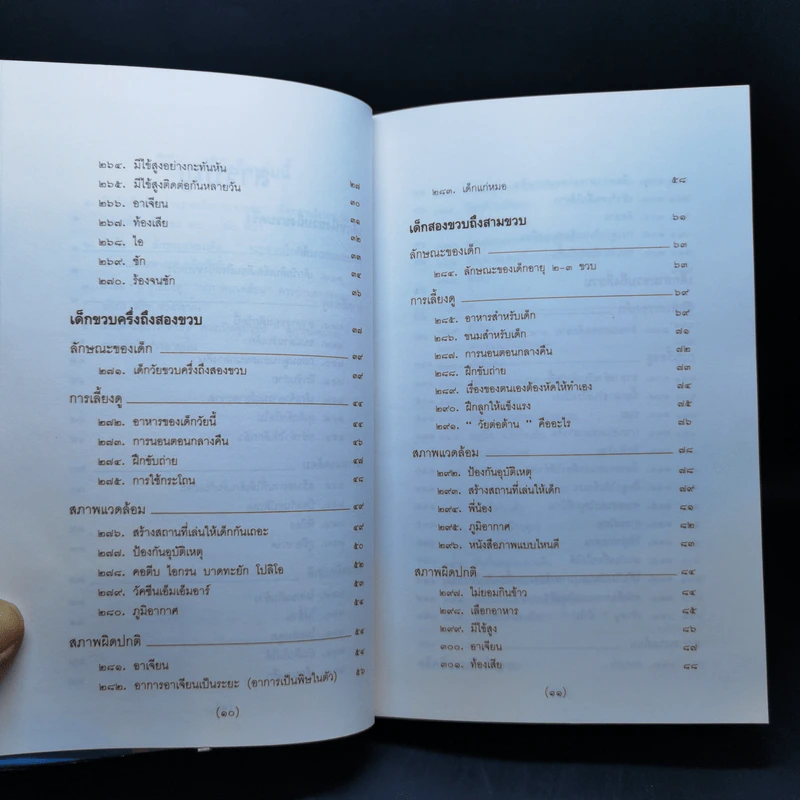 ๒๖๔. มีไข้สูงอย่างกะทันหัน
๒๖๕. มีไข้สูงติดต่อกันหลายวัน ๒๘
๒๖๖. อาเจียน ๓๐
๒๖๗. ท้องเสีย ๓๑
๒๖๘. ไอ ๓๒
๒๖๙. ชัก ๓๓
๒๗๐. ร้องจนชัก ๓๔
๓๖
เด็กขวบครึ่งถึงสองขวบ ๓๘
ลักษณะของเด็ก ๓๙
๒๗๑. เด็กวัยขวบครึ่งถึงสองขวบ ๓๙
การเลี้ยงดู ๔๔
๒๗๒. อาหารของเด็กวัยนี้ ๔๔
๒๗๓. การนอนตอนกลางคืน ๔๖
๒๗๔. ฝึกขับถ่าย ๔๗
๒๗๕. การใช้กระโถน ๔๘
สภาพแวดล้อม ๔๙
๒๗๖. สร้างสถานที่เล่นให้เด็กกันเถอะ ๔๙
๒๗๗. ป้องกันอุบัติเหตุ ๕๐
๒๗๘. คอตีบ ไอกรน บาดทะยัก โปลิโอ ๕๒
๒๗๙. วัคซีนเอ็มเอ็มอาร์ ๕๓
๒๘๐. ภูมิอากาศ ๕๔
สภาพผิดปกติ ๕๔
๒๘๑. อาเจียน ๕๔
๒๘๒. อาการอาเจียนเป็นระยะ (อาการเป็นพิษในตัว) ๕๖
(๑๐)
๒๘๓. เด็กแก่หมอ ๕๘
เด็กสองขวบถึงสามขวบ ๖๑
ลักษณะของเด็ก ๖๓
๒๘๔. ลักษณะของเด็กอายุ ๒-๓ ขวบ ๖๓
การเลี้ยงดู ๖๙
๒๘๕. อาหารสำหรับเด็ก ๖๙
๒๘๖. ขนมสำหรับเด็ก ๗๑
๒๘๗. การนอนตอนกลางคืน ๗๒
๒๘๘. ฝึกขับถ่าย ๗๓
๒๘๙. เรื่องของตนเองต้องหัดให้ทำเอง ๗๔
๒๙๐. ฝึกลูกให้แข็งแรง ๗๕
๒๙๑. " วัยต่อต้าน " คืออะไร ๗๖
สภาพแวดล้อม ๗๘
๒๙๒. ป้องกันอุบัติเหตุ ๗๘
๒๙๓. สร้างสถานที่เล่นให้เด็ก ๗๙
๒๙๔. พี่น้อง ๘๑
๒๙๕. ภูมิอากาศ ๘๒
๒๙๖. หนังสือภาพแบบไหนดี ๘๓
สภาพผิดปกติ ๘๔
๒๙๗. ไม่ยอมกินข้าว ๘๔
๒๙๘. เลือกอาหาร ๘๕
๒๙๙. มีไข้สูง ๘๖
๓๐๐. อาเจียน ๘๗
๓๐๑. ท้องเสีย ๘๘
(๑๑)